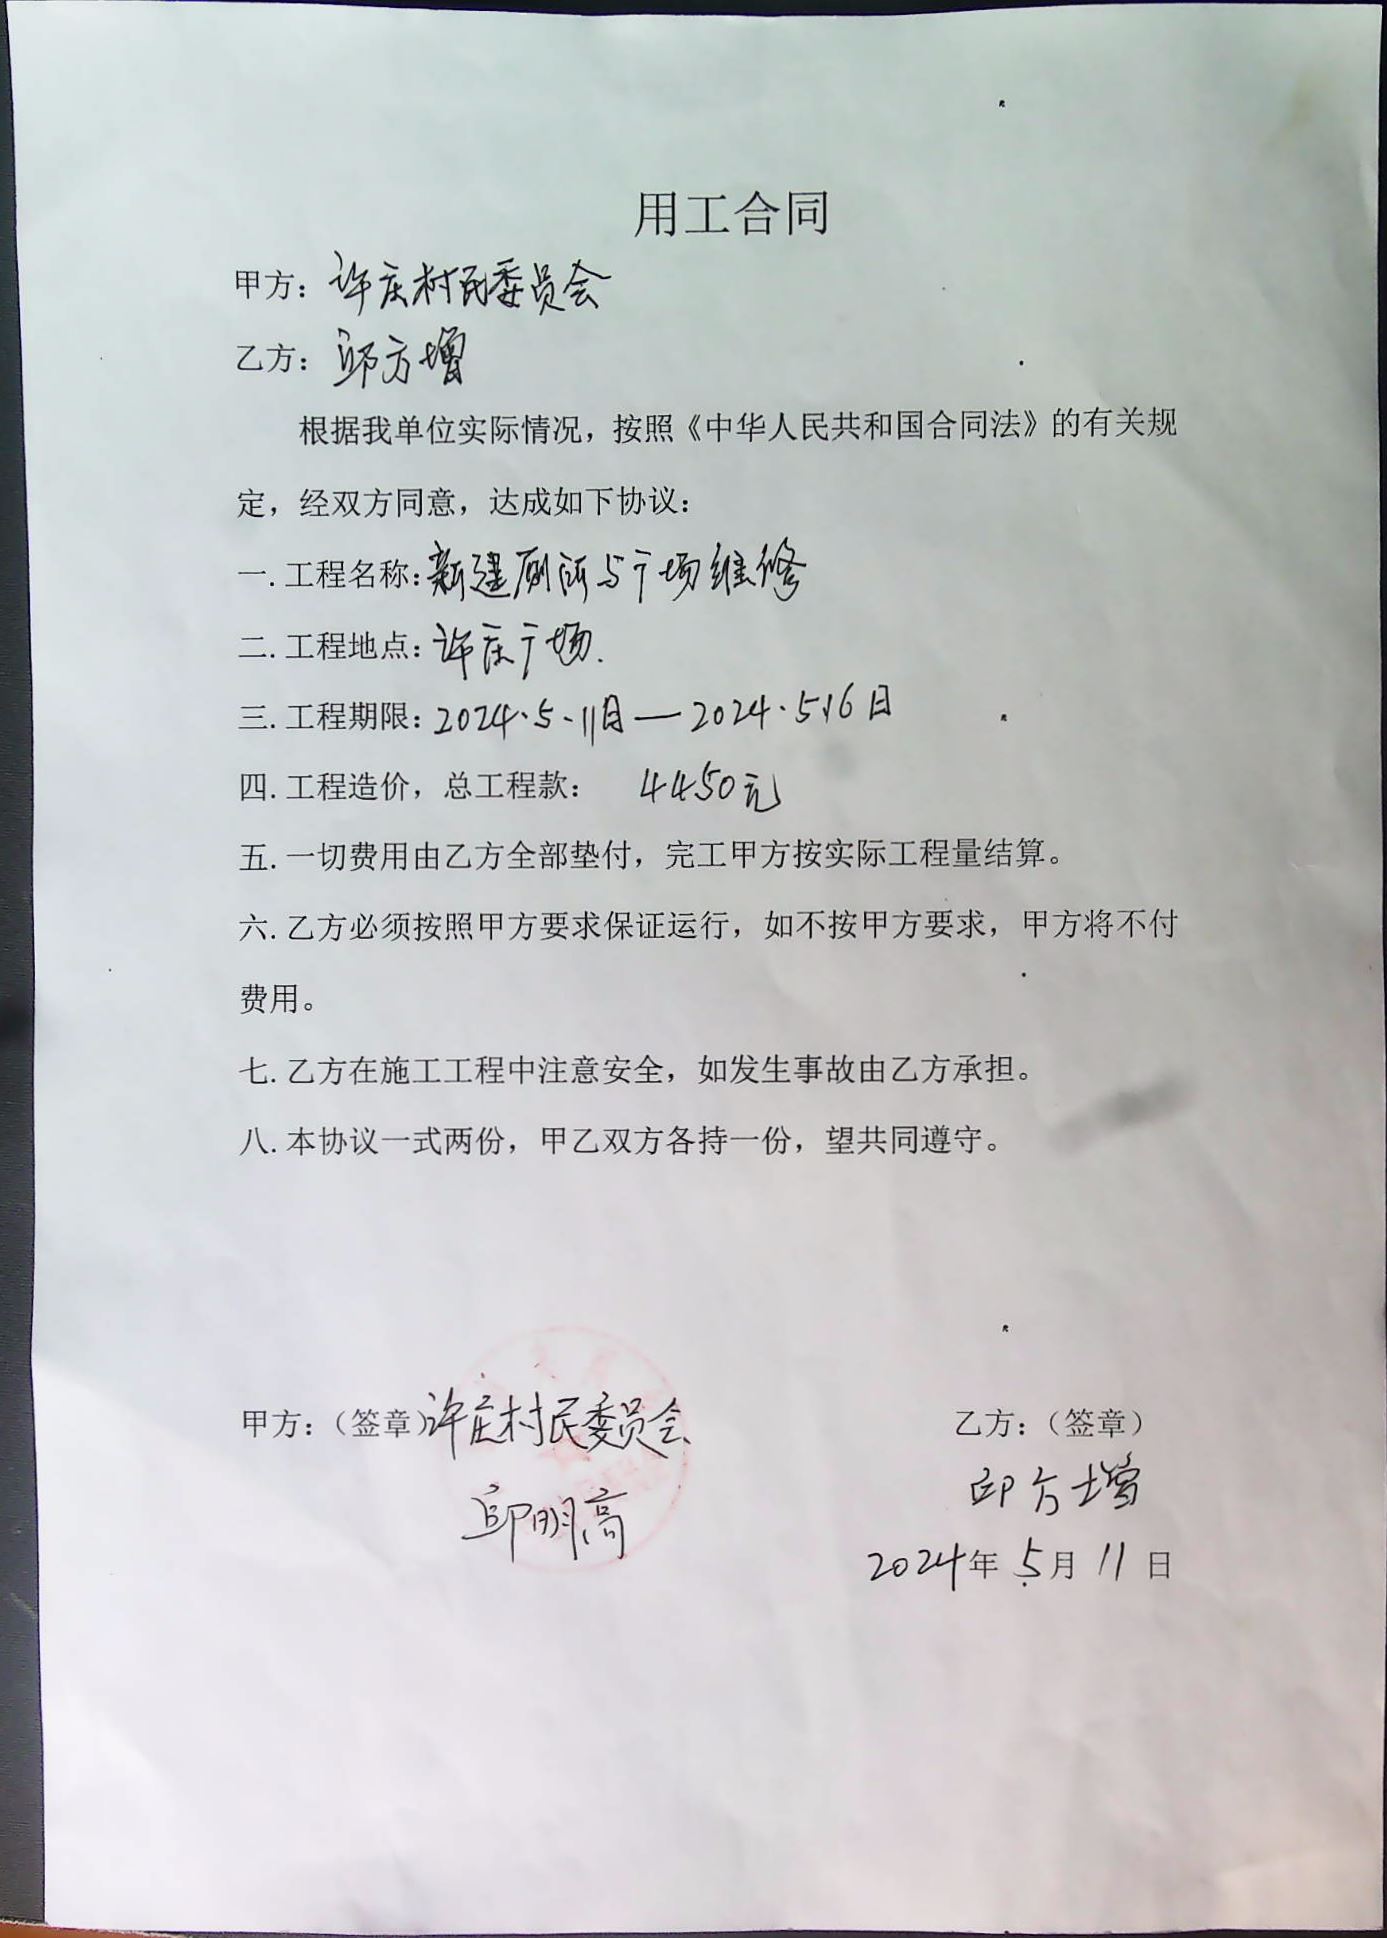 用工合同
甲方：许庄村民委员会
乙方：邱方增
根据我单位实际情况，按照《中华人民共和国合同法》的有关规
定，经双方同意，达成如下协议：
一.工程名称：新建厕所与广场维修
二.工程地点：许庄广场.
三.工程期限：2024.5.11日—2024.5.16日
四.工程造价，总工程款： 4450元
五.一切费用由乙方全部垫付，完工甲方按实际工程量结算。
六.乙方必须按照甲方要求保证运行，如不按甲方要求，甲方将不付
费用。
七.乙方在施工工程中注意安全，如发生事故由乙方承担。
八.本协议一式两份，甲乙双方各持一份，望共同遵守。
甲方：（签章）许庄村民委员会 乙方：（签章）
邱明高 邱方增
2024年 5月 11 日